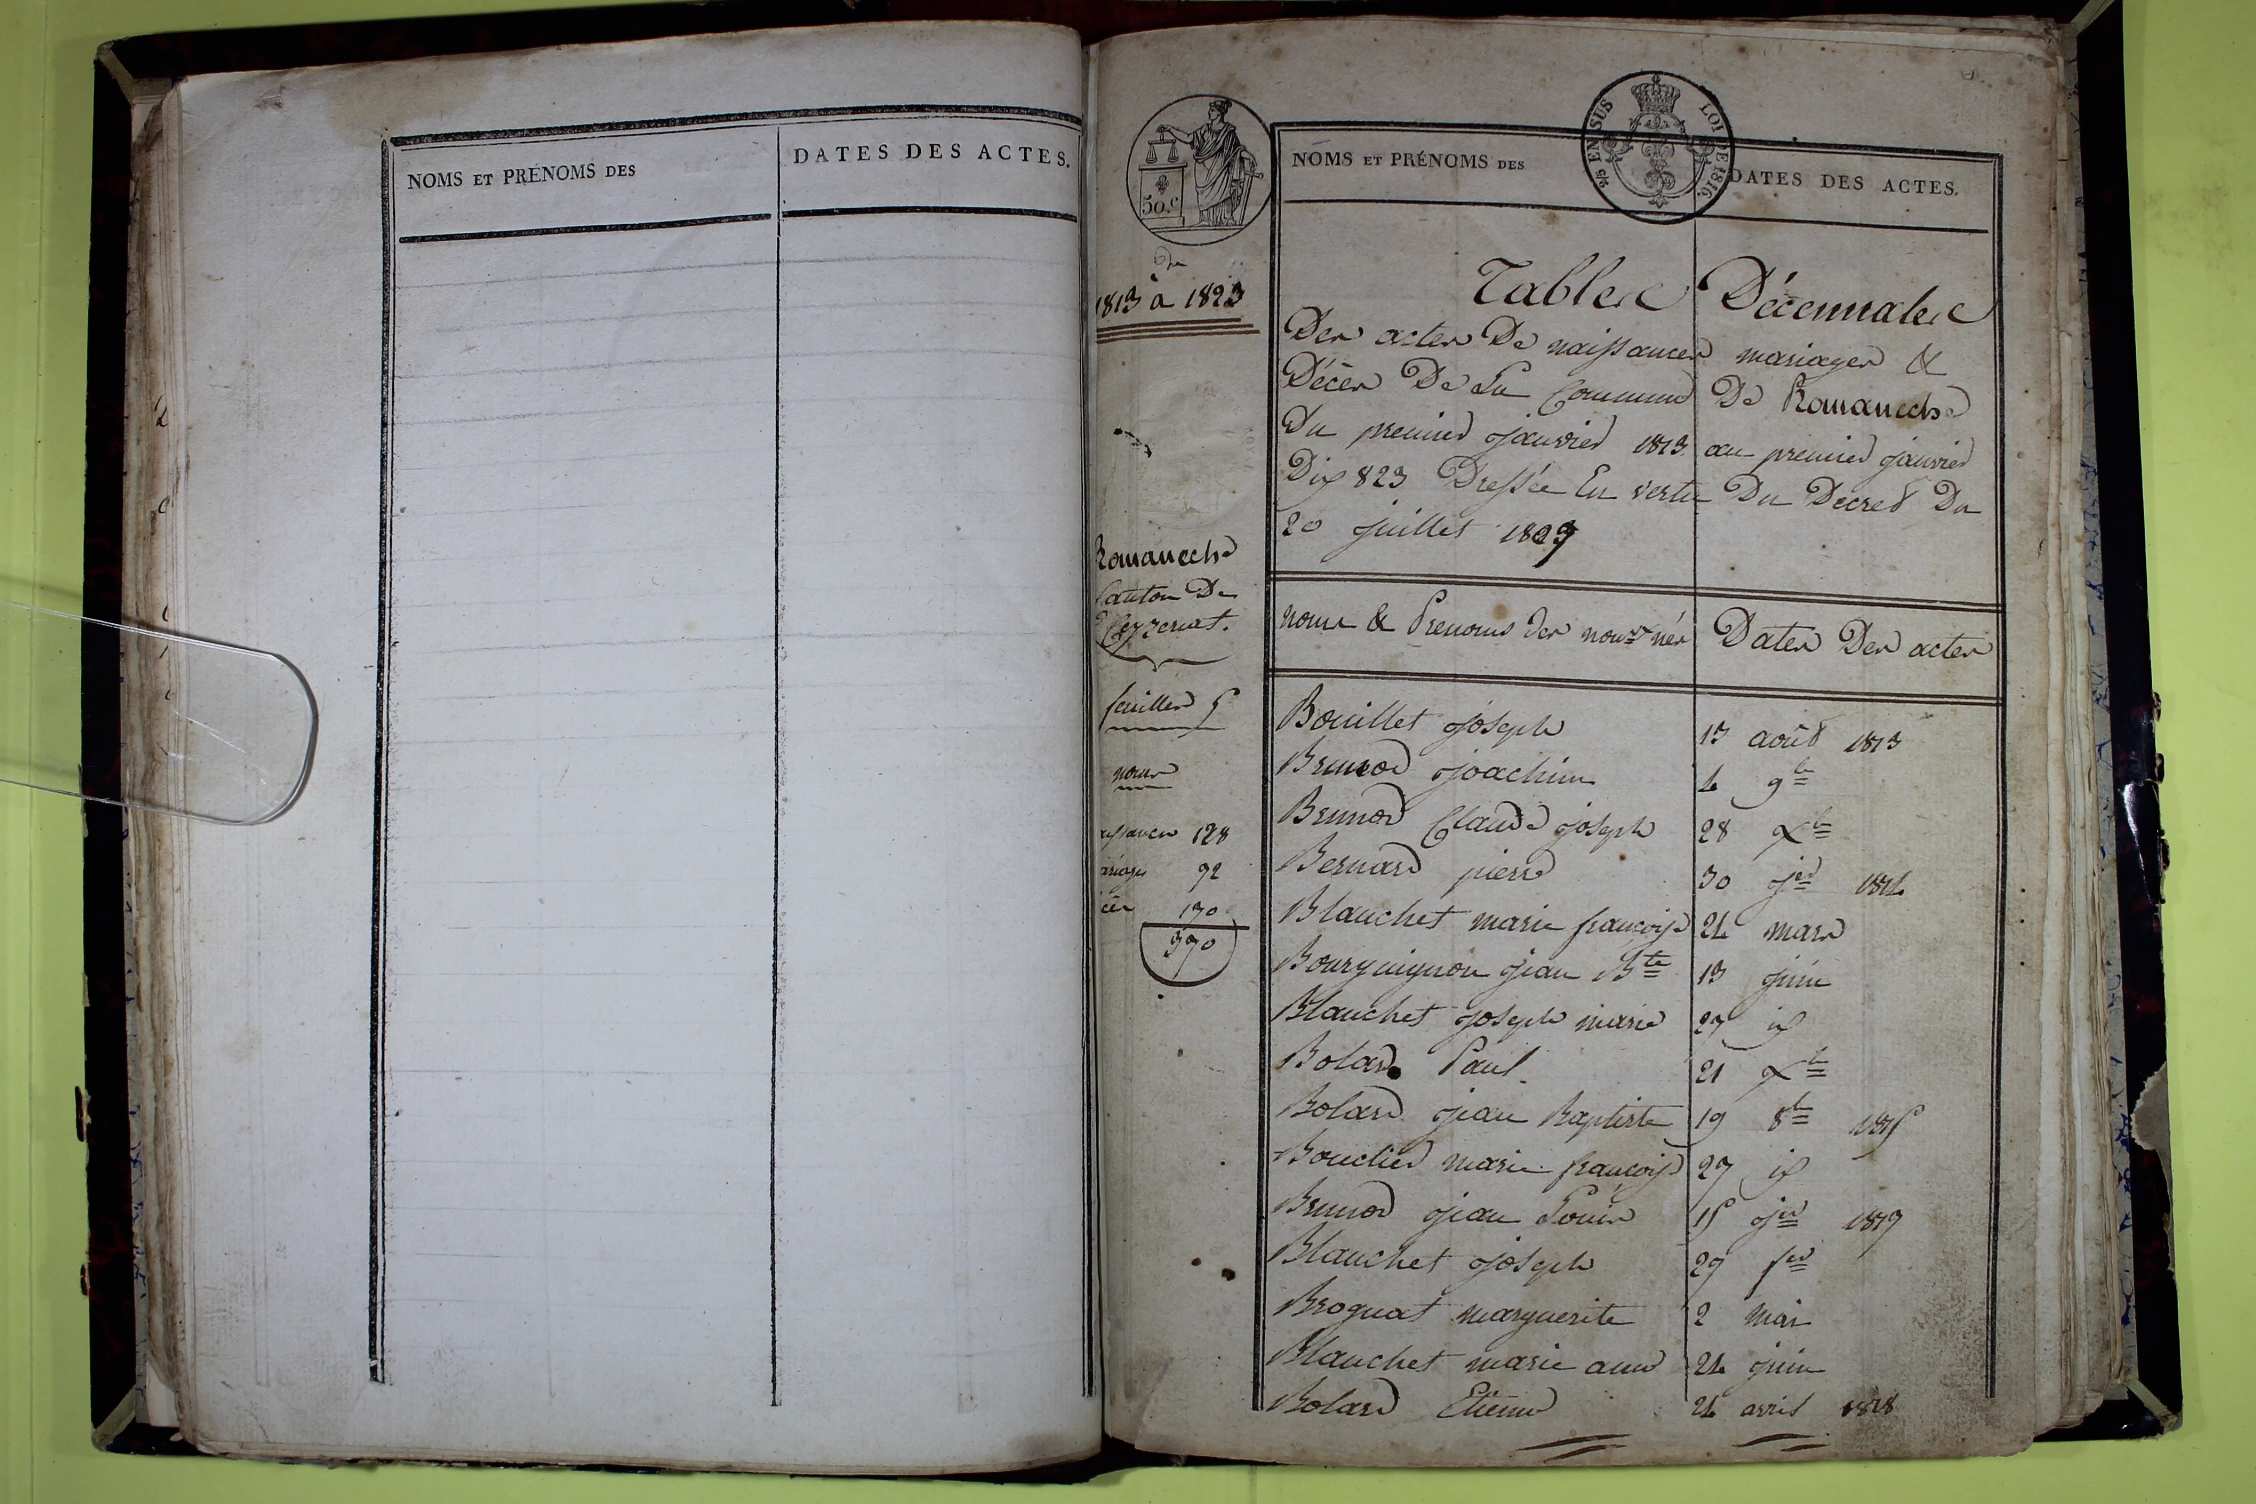 NOMS ET PRÉNOMS DES
DATES DES ACTES.
50.C
2/5 EN SUS
LOI DE 1816.
NOMS ET PRÉNOMS DES
DATES DES ACTES.
De
1813 à 1823
Romanech
Canton De
Ceyzeriat.
feuilles 5
noms
128
92
cès 130
370
Tables Décennales
Des actes De naissances mariages &
Décès De La Commune De Romaneche
Du premier janvier 1813 au premier janvier
Dix 823 Dressée En vertu Du Decret Du
20 juillet 1807
noms & Prenoms des nouvx nés
Dates Des actes
Bouillet joseph 13 août 1813
Brunod joachim 4 9bre
Brunod Claude joseph 28 Xbre
Bernard pierre 30 jer 1814
Blanchet marie françoise 24 mars
Bourguignon jean Bte 13 juin
Blanchet joseph marie 27 id
Bolard Paul 21 Xbre
Bolard jean Baptiste 19 8bre 1815
Bouclier marie françoise 27 id
Brunod jean Louis 15 jer 1817
Blanchet joseph 27 fer
Brognat marguerite 2 mai
Blanchet marie anne 24 juin
Bolard Etienne 24 avril 1818